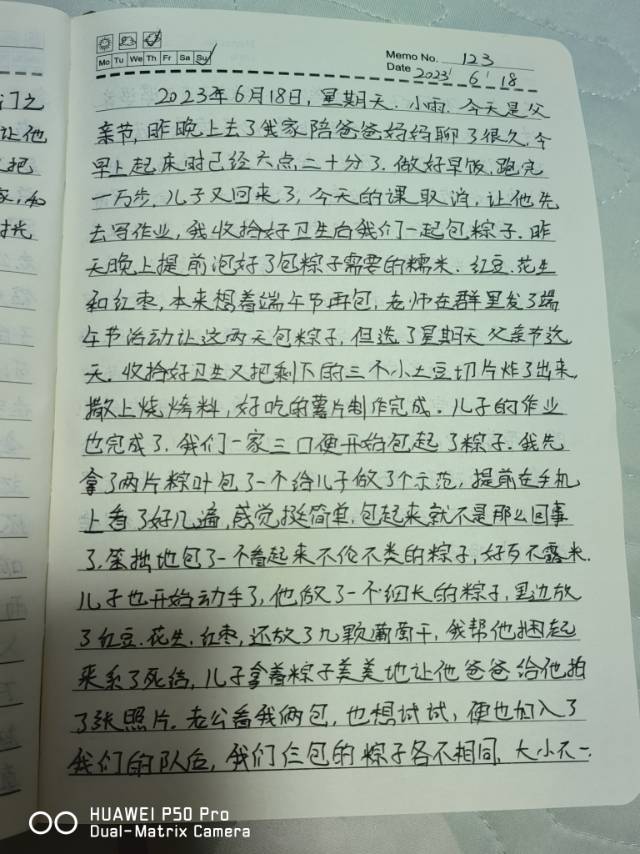 Mo Tu We Th Fr Sa Su
Memo No. 123
Date 2023 6 18
2023年6月18日,星期天.小雨.今天是父
亲节,昨晚上去了我家陪爸爸妈妈聊了很久,今
早上起床时已经六点二十分了.做好早饭,跑完
一万步,儿子又回来了,今天的课取消,让他先
去写作业,我收拾好卫生后我们一起包粽子.昨
天晚上提前泡好了包粽子需要的糯米.红豆.花生
和红枣,本来想着端午节再包,老师在群里发了端
午节活动让这两天包粽子,但选了星期天父亲节这
天.收拾好卫生又把剩下的三个小土豆切片炸了出来
撒上烧烤料,好吃的薯片制作完成.儿子的作业
也完成了.我们一家三口便开始包起了粽子.我先
拿了两片粽叶包了一个给儿子做了个示范,提前在手机
上看了好几遍,感觉挺简单,包起来就不是那么回事
了.笨拙地包了一个看起来不伦不类的粽子,好歹不露米.
儿子也开始动手了,他做了一个细长的粽子,里边放
了红豆.花生.红枣,还放了九颗葡萄干,我帮他捆起
来系了死结,儿子拿着粽子美美地让他爸爸给他拍
了张照片.老公看我俩包,也想试试,便也加入了
我们的队伍,我们仨包的粽子各不相同,大小不一.
们之
让他
把
家,和
时光
HUAWEI P50 Pro
Dual-Matrix Camera